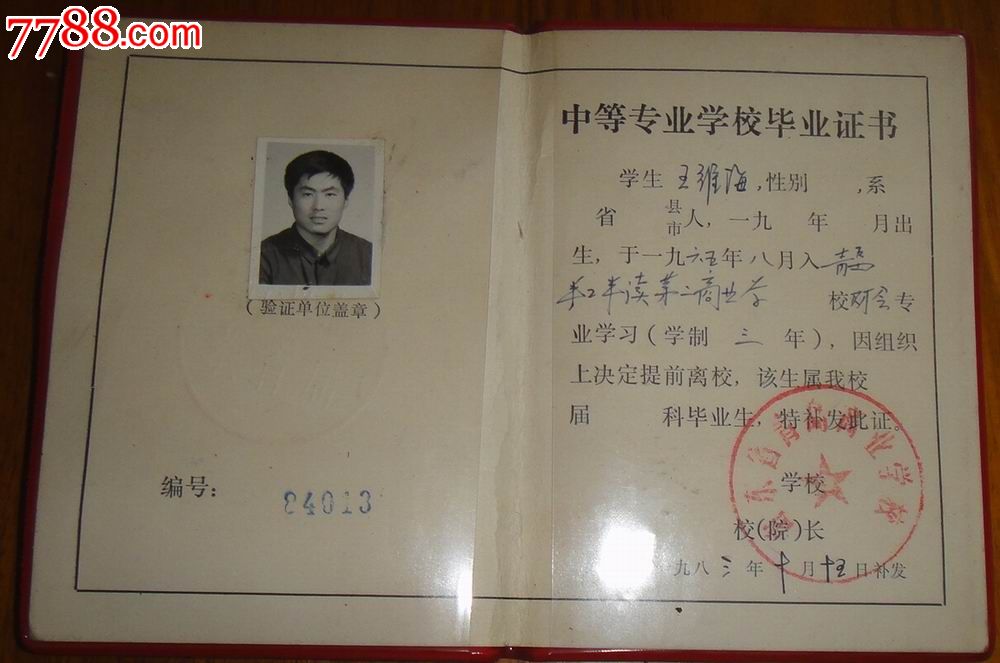 7788.com
(验证单位盖章)
编号: 84013
中等专业学校毕业证书
学生 王维海,性别 ,系
省 县市人,一九 年 月出
生,于一九六五年八月入青岛
半工半读第二商业学 校财会专
业学习(学制 三 年),因组织
上决定提前离校,该生属我校
届 科毕业生,特补发此证。
山东省青岛商业学校
学校
校(院)长
一九八三年十月十五日补发